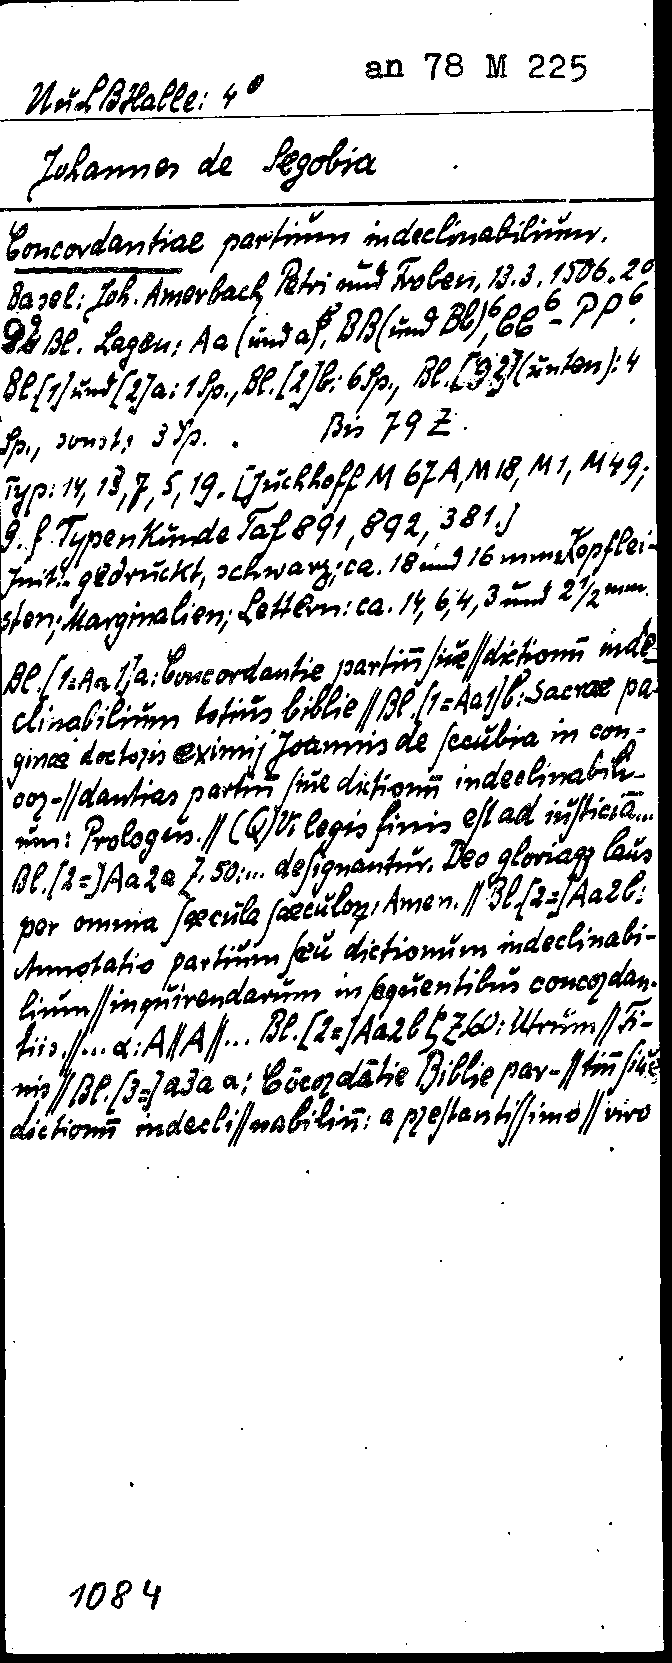 an 78 M 225
UuLBHalle: 4°
Johannes de Segobia
Concordantiae partium indeclinabilium.
Basel: Joh. Amerbach, Petri und Froben, 13.3.1506. 2°
Bl. Lagen: Aa (und a)⁸, BB (und Bb)⁶, CC⁶ - PP⁶.
Bl. [1] und [2]a: 1 Sp., Bl. [2]b: 6 Sp., Bl. [92] (unten): 4
Sp., sonst: 3 Sp. . Bis 79 Z.
Typ: 14, 13, 7, 5, 19. [Juchhoff M 67A, M 18, M 1, M 49;
g. f. Typenkunde Taf 891, 892, 381.]
Init.: gedruckt, schwarz; ca. 18 und 16 mm. Kopflei-
sten; Marginalien; Lettern: ca. 14, 6, 4, 3 und 2 1/2 mm.
Bl. [1=Aa1]a: Concordantie partiū siue//dictionū inde-
clinabilium totius biblie // Bl. [1=Aa1]b: Sacrae pa-
ginae doctoris eximij Joannis de secubia in con-
cor-//dantias partiū siue dictionū indeclinabili-
um: Prologus. // (Q)Vi legis finis est ad iusticiā...
Bl. [2=]Aa2a Z. 50:... designantur. Deo gloriaqz laus
per omnia sæcula sæculoꝝ, Amen. // Bl. [2=]Aa2b:
Annotatio partium seu dictionum indeclinabi-
lium//inquirendarum in sequentibus concordan-
tiis.//... α: A//A//... Bl. [2=]Aa2b ζ Z.60: Utrum // Fi-
nis // Bl. [3=]a3a α: Cōcordātie Biblie par-//tiū siue
dictionū indecli//nabiliū: a prestantissimo // viro
1084